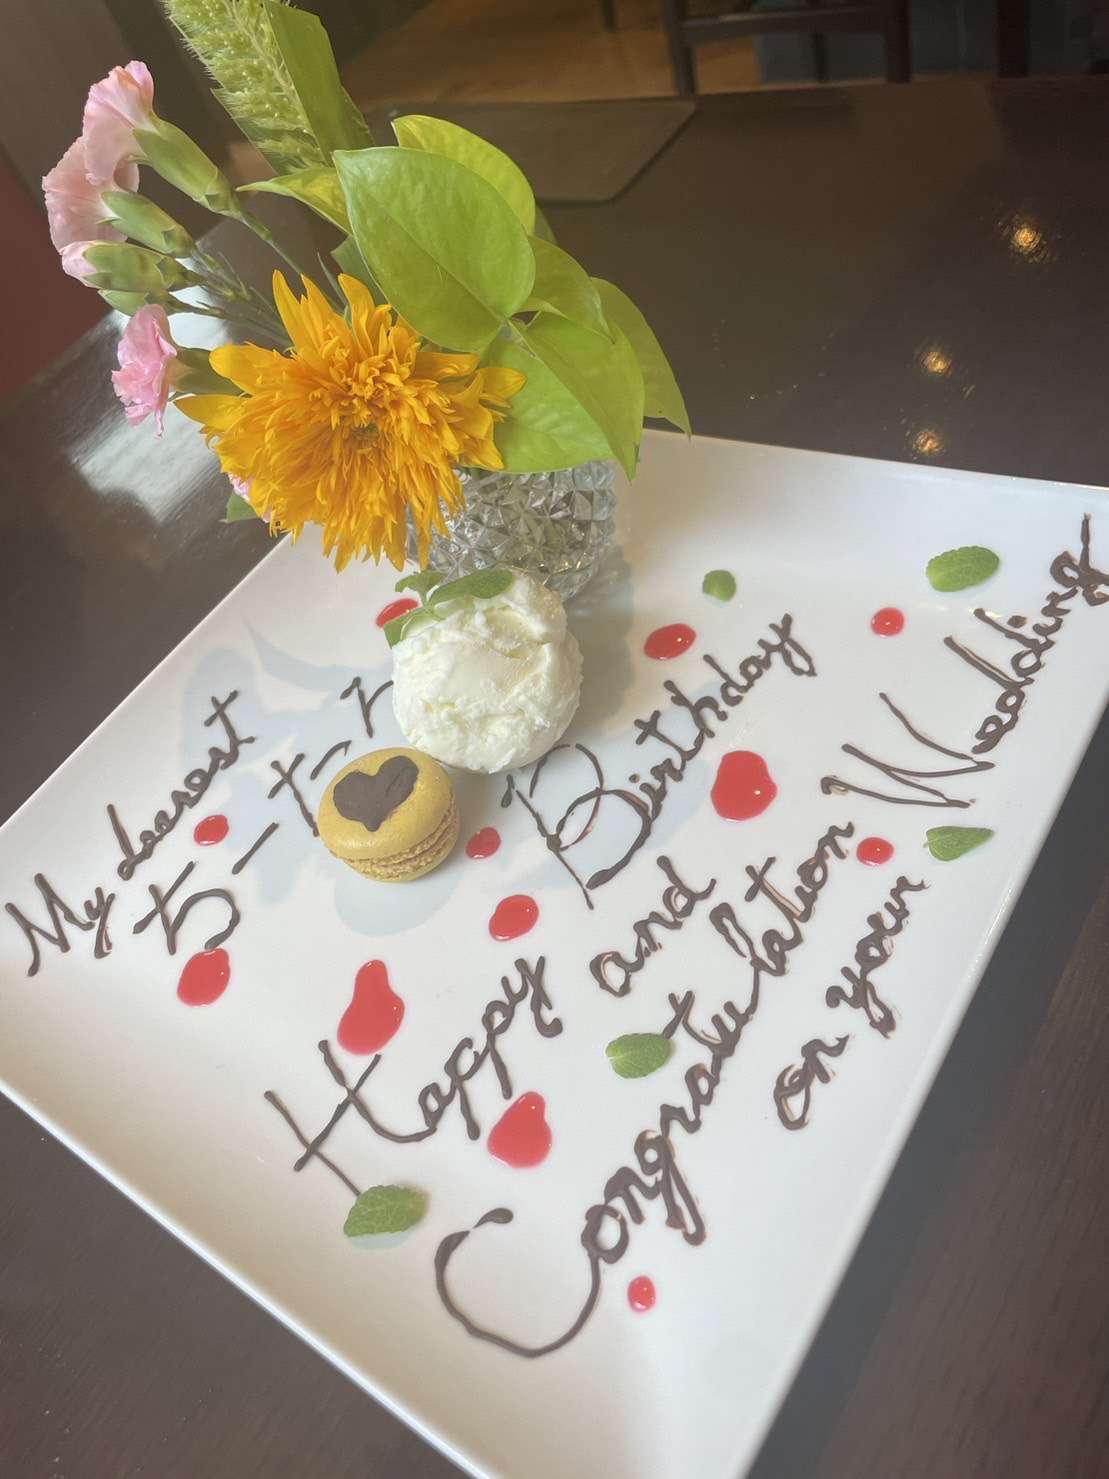 My dearest
ちー
Happy Birthday
and
Congratulation
on your Wedding